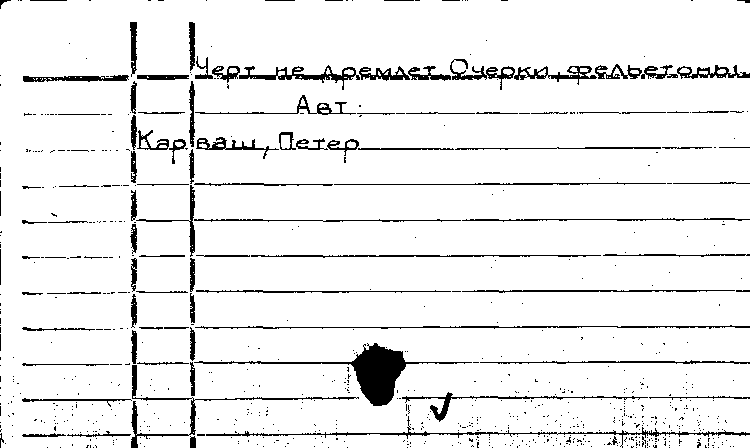 Черт не дремлет Очерки, фельетоны.
Авт.:
Карваш, Петер